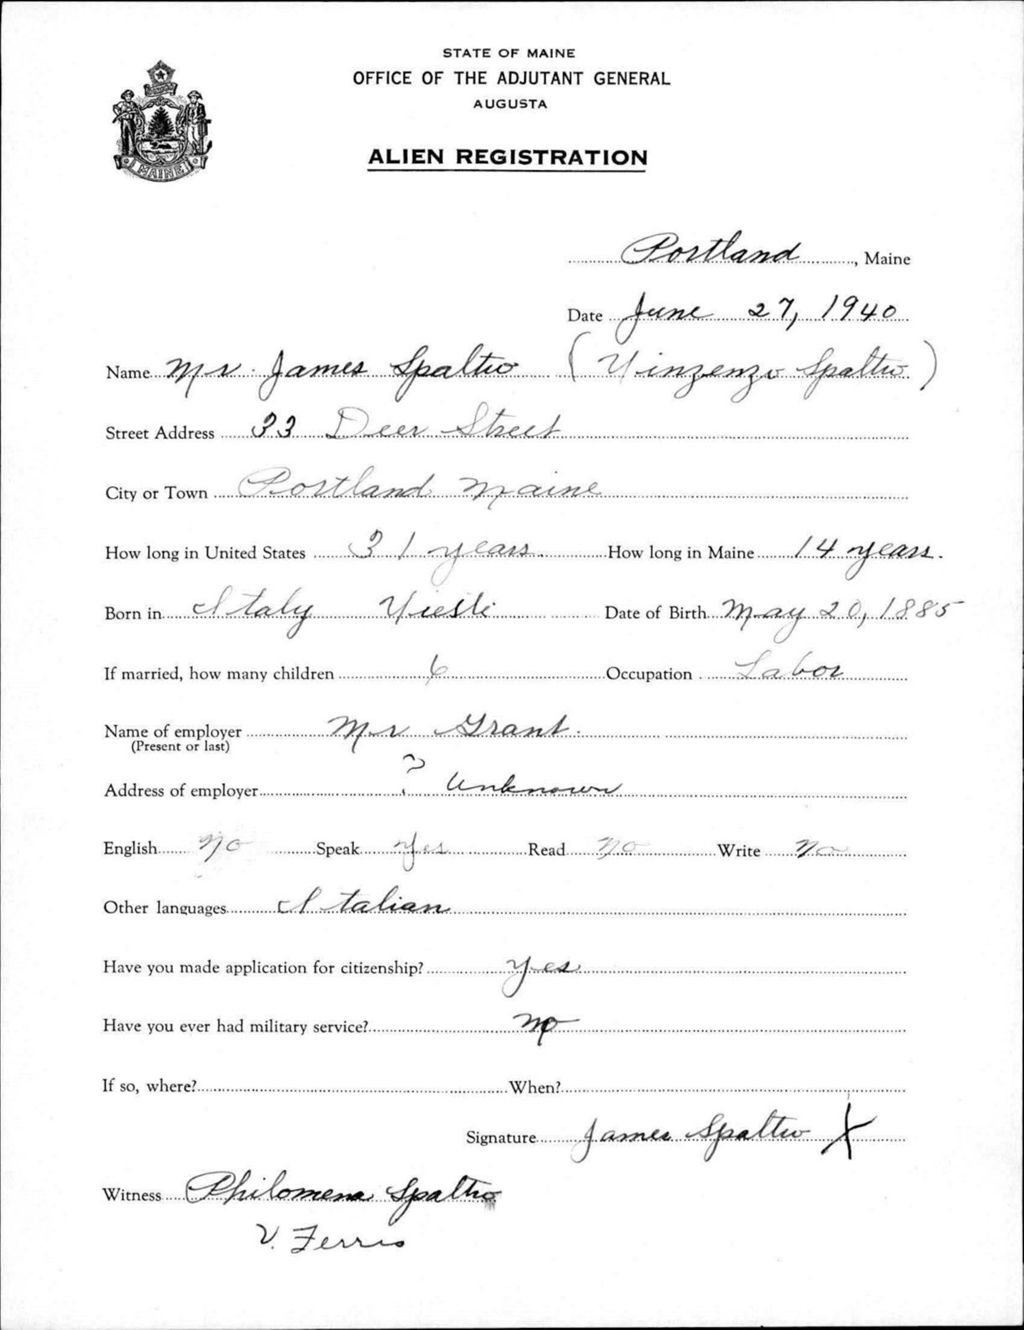 STATE OF MAINE
OFFICE OF THE ADJUTANT GENERAL
AUGUSTA
ALIEN REGISTRATION
MAINE
Portland, Maine
Date June 27, 1940
Name Mr. James Spaltro (Vinzenzo Spaltro)
Street Address 33 Deer Street
City or Town Portland Maine
How long in United States 31 years. How long in Maine 14 years.
Born in Italy Date of Birth May 20, 1885
If married, how many children 6 Occupation Labor
Name of employer Mr Grant.
(Present or last)
Address of employer ? Unknown
English No Speak Yes Read No Write No
Other languages Italian
Have you made application for citizenship? Yes
Have you ever had military service? No
If so, where? When?
Signature James Spaltro X
Witness Philomena Spaltro
V. Ferris